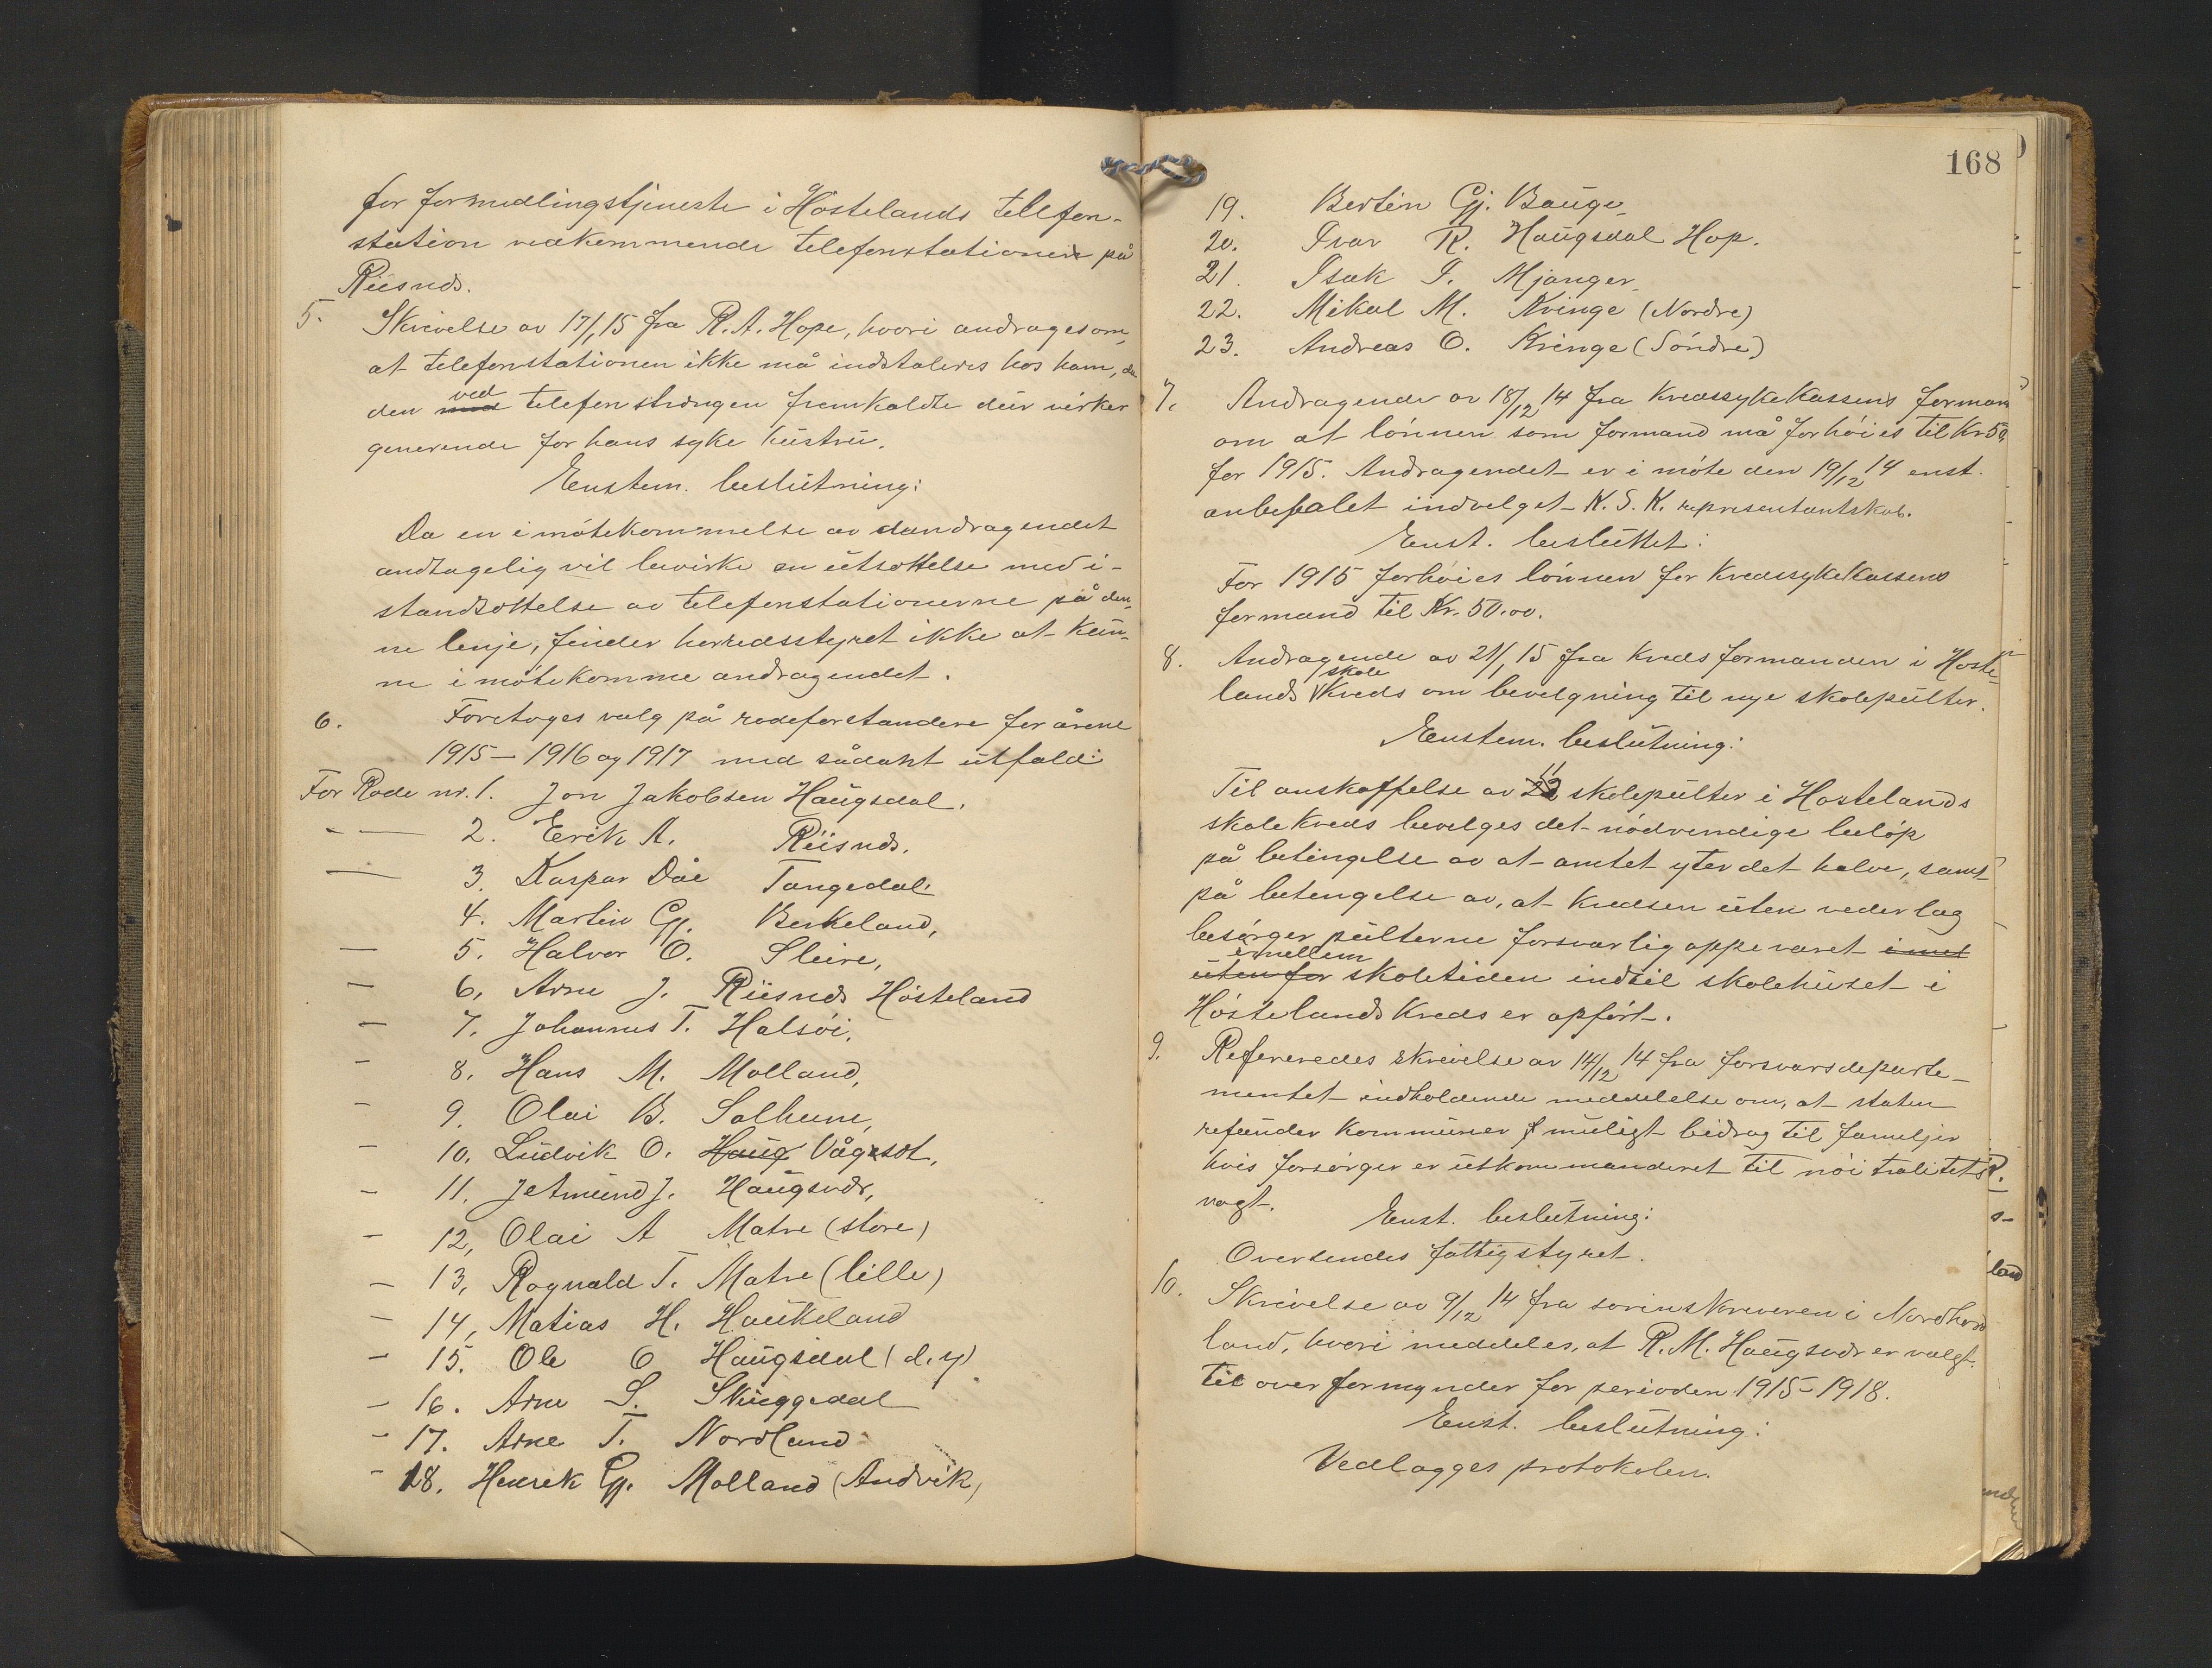 for formedlingstjeneste i Höstelands telefon-
station vedkommende telefonstationer på
Riisnes.
5. Skrivelse av 17/1 15 fra R. A. Hope, hvori andrages om,
at telefonstationen ikke må indstaleres hos ham, da
den ved telefonstrøngen fremkaldte dur virker
generende for hans syke hustru.
Enstem. beslutning:
Da en imötekommelse av andragendet
andtagelig vil bevirke en utsettelse med i-
standsettelse av telefonstationerne på den-
ne lenje, finder herredsstyret ikke at kun-
ne imötekomme andragendet.
6. Foretages valg på rodeforstandere for årene
1915 – 1916 og 1917 med sådant utfald:
For Rode nr. 1. Jon Jakobsen Haugsdal.
– — 2. Erik A. Riisnes.
— 3. Kaspar Dåe Tangedal.
4. Martin Gj. Berkeland,
— 5. Halvor O. Sleire,
– 6. Arne J. Riisnes Hösteland
– 7. Johannes T. Halsöi.
– 8. Hans M. Molland,
– 9. Olai B. Solheim,
– 10. Ludvik O. Haug Vågset.
– 11. Jetmund J. Haugsvær,
– 12, Olai A Matre (store)
– 13, Rognald T. Matre (lille)
– 14, Matias H. Haukeland
– 15. Ole O Haugsdal (d. y)
– 16. Arne S. Skuggedal
– 17. Arne T. Nordland
– 18. Henrik Gj. Molland (Andvik)
168
19. Bertin Gj. Bauge
20. Ivar R. Haugsdal Hop.
21. Isak I. Mjanger
22. Mikal M. Kvinge (Nordre)
23. Andreas O. Kvinge (Söndre)
7. Andragende av 18/12 14 fra Kredssykekassens forman
om at lönnen som formand må forhöies til Kr 50,
for 1915. Andragendet er i möte den 19/12 14 enst.
anbefalet indvelget K. S. K. representantskab.
Enst. besluttet:
For 1915 forhöies lönnen for Kredssykekassens
formand til Kr. 50.00.
8. Andragende av 21/1 15 fra Kredsformanden i Hoste-
lands skole Kreds om bevelgning til nye skolepulter.
Enstem. beslutning:
Til anskaffelse av 11 skolepulter i Hostelands
skolekreds bevelges det nödvendige belöp
på betingelse av at amtet yter det halve, samt
på betengelse av, at Kredsen uten vederlag
besörger pulterne forsvarlig oppevaret imel
uten for imellem skoletiden indtil skolehuset i
Höstelands Kreds er opfört.
9. Refereredes skrivelse av 14/12 14 fra forsvarsdeparte-
mentet indholdende meddelelse om, at staten
refunder kommuner muligt bidrag til familjer
hvis forsörger er utkommanderet til nöitralitets
vagt.
Enst. beslutning:
Oversendes fattigstyret.
10. Skrivelse av 9/12 14 fra sorinskriveren i Nordhord
land, hvori meddeles, at R. M. Haugsvær er valgt
til overformynder for perioden 1915–1918.
Enst. beslutning:
Vedlegges protokolen.